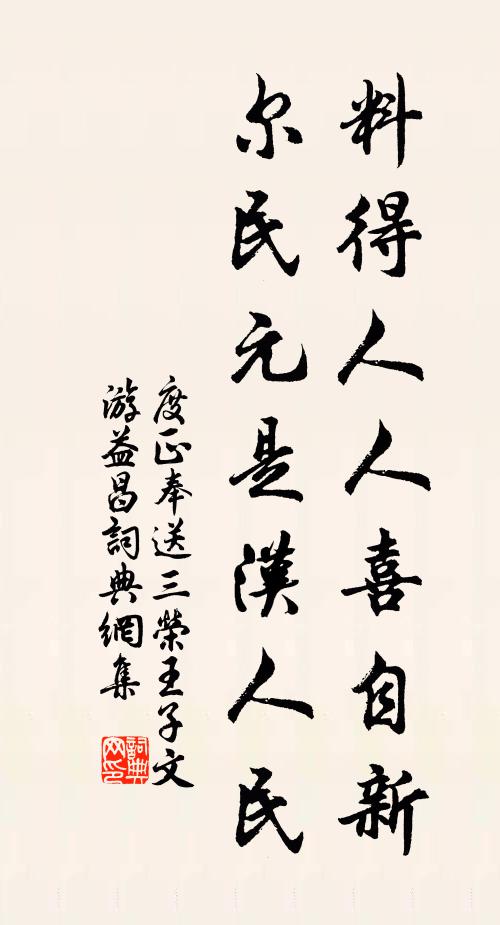 料得人人喜自新
尔民元是漢人民
度正奉送三榮王子文
游益昌詞典網集
詞典網印